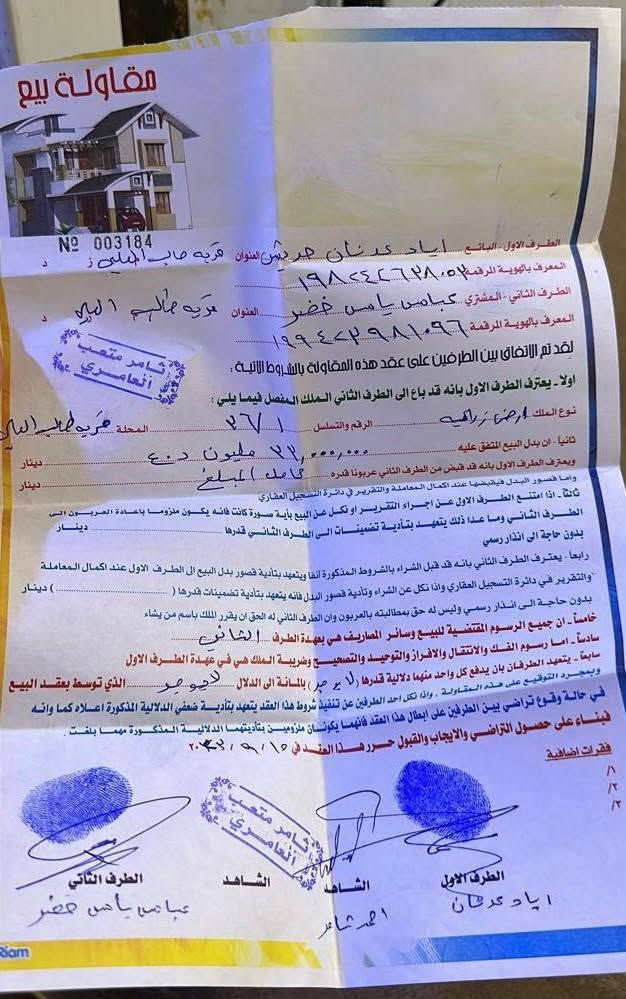 مقاولة بيع
№ 003184
الطرف الاول - البائع اياد عدنان العنوان قرية
المعرف بالهوية المرقمة
الطرف الثاني - المشتري عباس ياس خضر العنوان قرية
المعرف بالهوية المرقمة
ثامر متعب
العامري
لقد تم الاتفاق بين الطرفين على عقد هذه المقاولة بالشروط الاتية :
اولا - يعترف الطرف الاول بانه قد باع الى الطرف الثاني الملك المفصل فيما يلي :
نوع الملك ارض زراعية الرقم والتسلسل ٣٦/١ المحلة قرية
ثانيا - ان بدل البيع المتفق عليه مليون د.ع دينار
ويعترف الطرف الاول بانه قد قبض من الطرف الثاني عربونا قدره كامل المبلغ دينار
واما قصور البدل فيقبضها عند اكمال المعاملة والتقرير في دائرة التسجيل العقاري
ثالثا - اذا امتنع الطرف الاول عن اجراء التقرير او نكل عن البيع بأية صورة كانت فانه يكون ملزوما باعادة العربون الى
الطرف الثاني وما عدا ذلك يتعهد بتأدية تضمينات الى الطرف الثاني قدرها دينار
بدون حاجة الى انذار رسمي
رابعا - يعترف الطرف الثاني بانه قد قبل الشراء بالشروط المذكورة آنفا ويتعهد بتأدية قصور بدل البيع الى الطرف الاول عند اكمال المعاملة
والتقرير في دائرة التسجيل العقاري واذا نكل عن الشراء وتأدية قصور البدل فانه يتعهد بتأدية تضمينات قدرها ( ) دينار
بدون حاجة الى انذار رسمي وليس له حق بمطالبته بالعربون وان الطرف الثاني له الحق ان يقرر الملك باسم من يشاء
خامساً - ان جميع الرسوم المقتضية للبيع وسائر المصاريف هي بعهدة الطرف الثاني
سادسا - اما رسوم الفك والانتقال والافراز والتوحيد والتصحيح وضريبة الملك هي في عهدة الطرف الاول
سابعا - يتعهد الطرفان بأن يدفع كل واحد منهما دلالية قدرها (لا يوجد) بالمائة الى الدلال لا يوجد الذي توسط بعقد البيع
وبمجرد التوقيع على هذه المقاولة . واذا نكل احد الطرفين عن تنفيذ شروط هذا العقد يتعهد بتأدية ضعفي الدلالية المذكورة اعلاه كما وانه
في حالة وقوع تراضي بين الطرفين على ابطال هذا العقد فانهما يكونان ملزومين بتأديتهما الدلالية المذكورة مهما بلغت .
فبناء على حصول التراضي والايجاب والقبول حرر هذا العقد في
فقرات اضافية
١/
٢/
٣/
ثامر متعب
العامري
الطرف الاول الشاهد الشاهد الطرف الثاني
اياد عدنان عباس ياس خضر